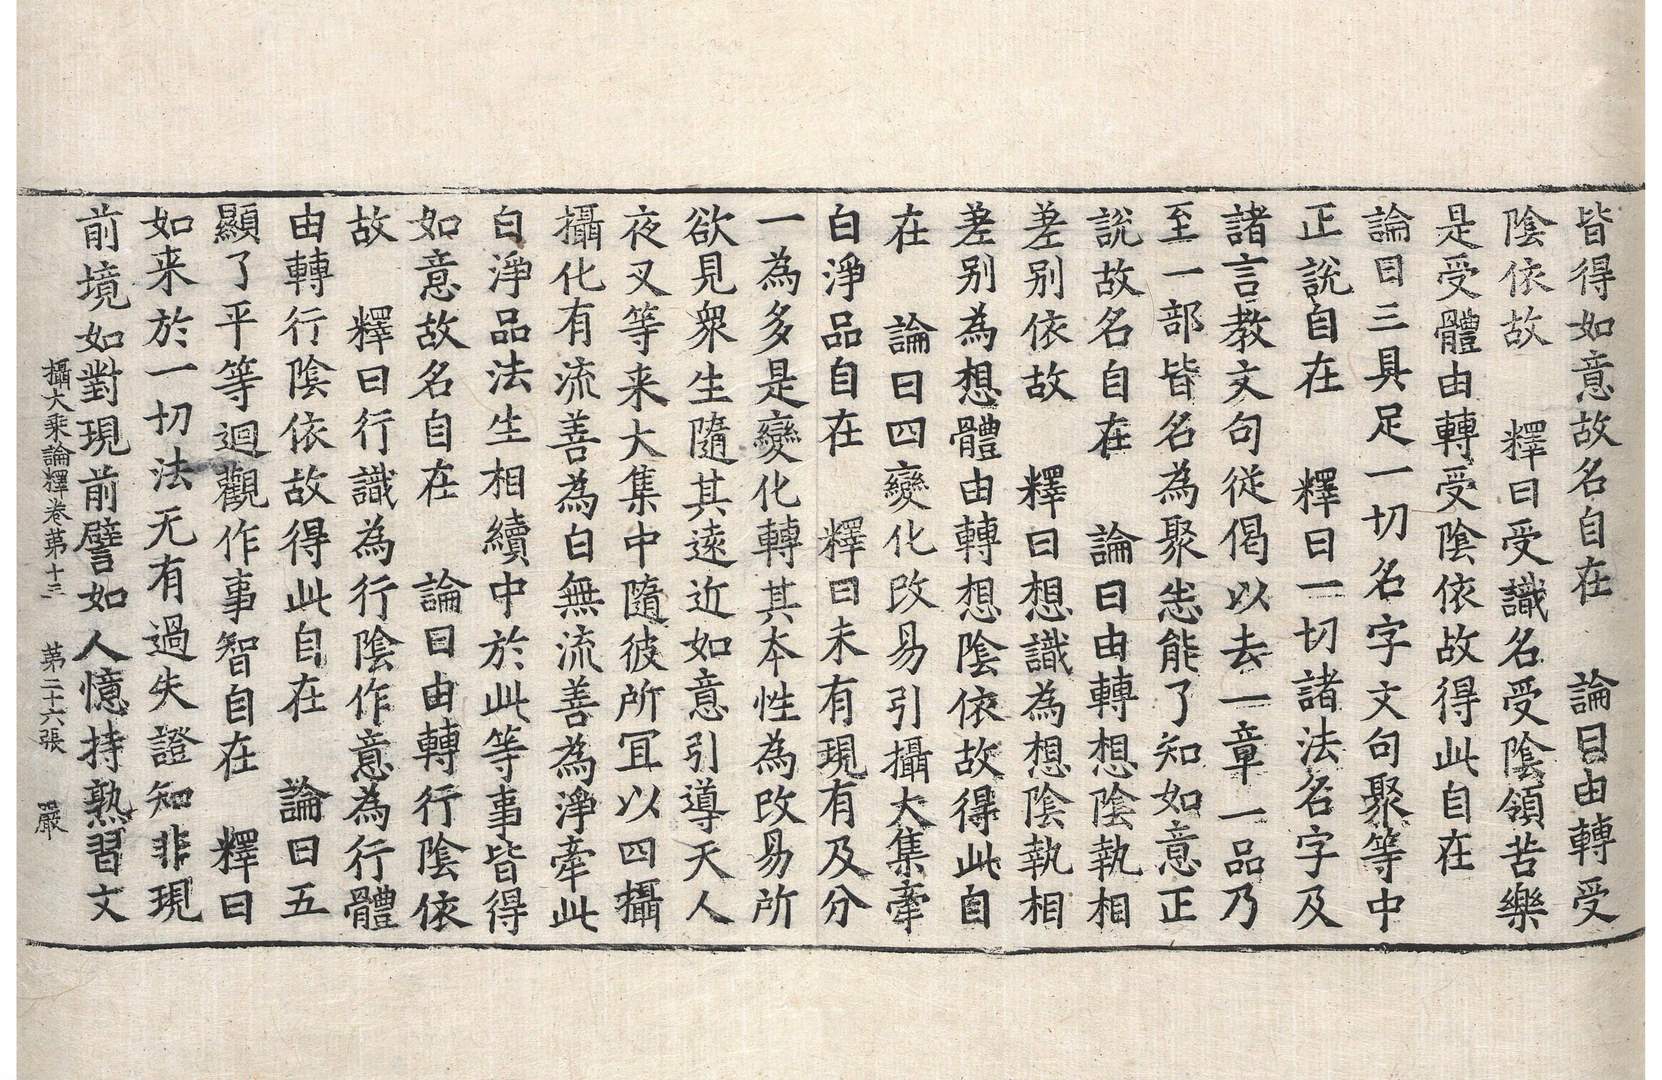 皆得如意故名自在　論曰由轉受
陰依故　釋曰受識名受陰領苦樂
是受體由轉受陰依故得此自在
論曰三具足一切名字文句聚等中
正說自在　釋曰一切諸法名字及
諸言教文句從偈以去一章一品乃
至一部皆名為聚悉能了知如意正
說故名自在　論曰由轉想陰執相
差别依故　釋曰想識為想陰執相
差别為想體由轉想陰依故得此自
在　論曰四變化改易引攝大集牽
白淨品自在　釋曰未有現有及分
一為多是變化轉其本性為改易所
欲見衆生隨其遠近如意引導天人
夜叉等来大集中隨彼所冝以四攝
攝化有流善為白無流善為淨牽此
白淨品法生相續中於此等事皆得
如意故名自在　論曰由轉行陰依
故　釋曰行識為行陰作意為行體
由轉行陰依故得此自在　論曰五
顯了平等迴觀作事智自在　釋曰
如来於一切法无有過失證知非現
前境如對現前譬如人憶持熟習文
攝大乘論釋卷第十三　第二十六張　嚴